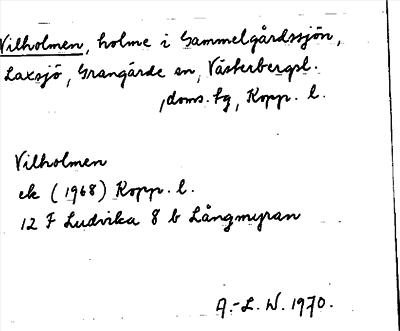 Vilholmen, holme i Gammelgårdssjön,
Laxsjö, Grangärde sn, Västerbergsl.
,doms. tg, Kopp. l.
Vilholmen
ek (1968) Kopp. l.
12 F Ludvika 8 b Långmyran
A.-L. W. 1970.